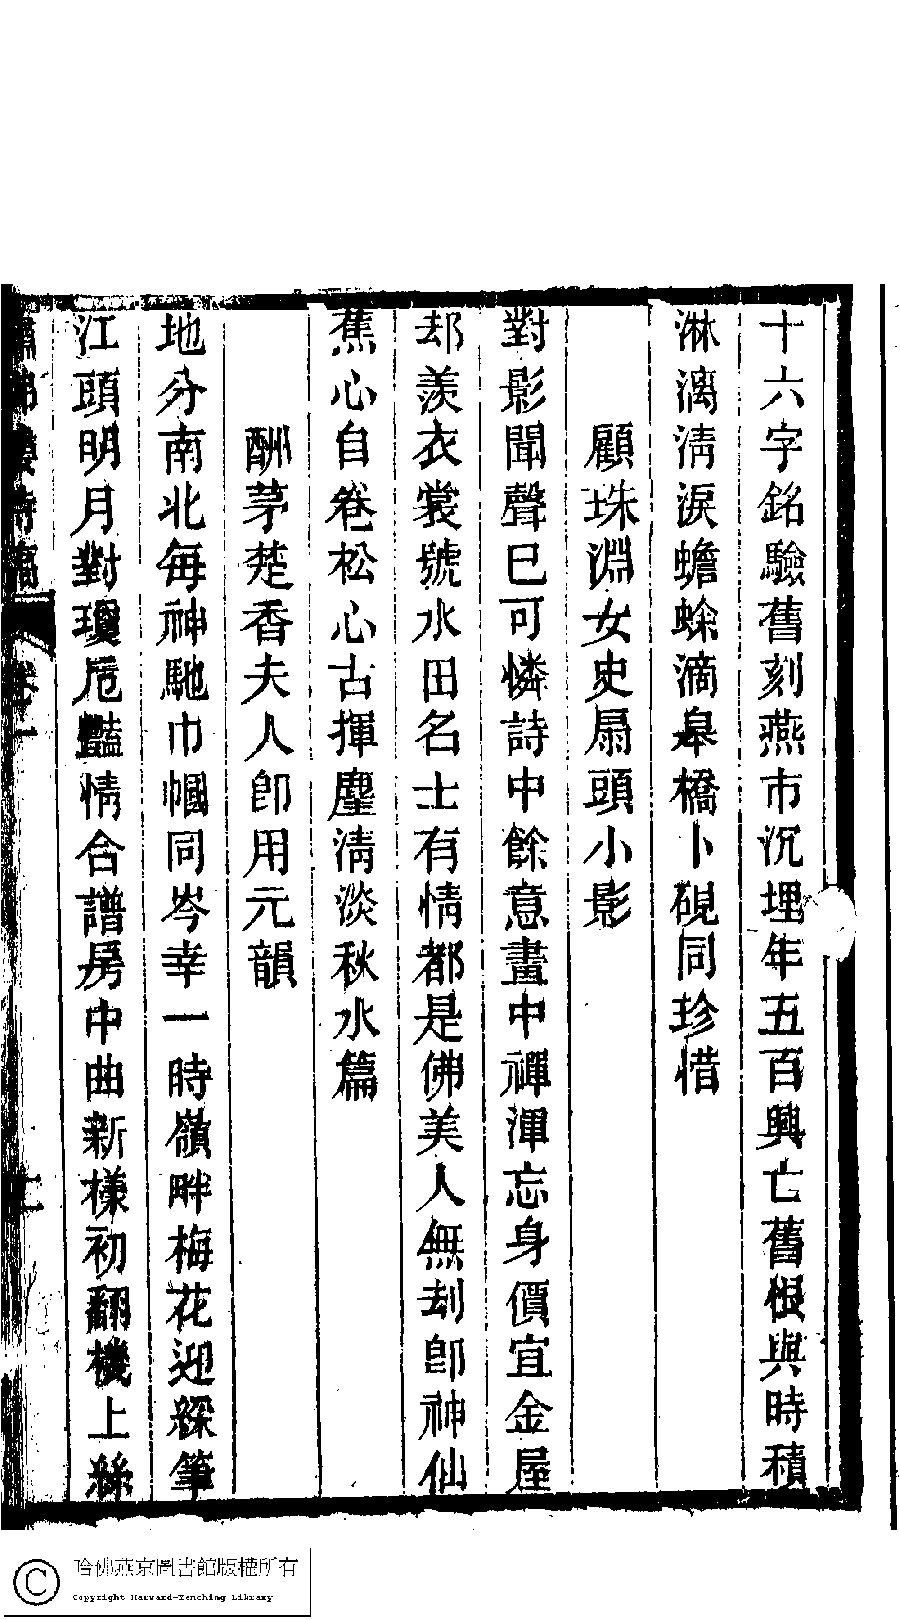 十六字銘驗舊刻燕市沉埋年五百興亡舊恨與時積
淋漓淸淚蟾蜍滴皋橋卜硯同珍惜
顧珠淵女史扇頭小影
對影聞聲已可憐詩中餘意畫中禪渾忘身價宜金屋
却羨衣裳號水田名士有情都是佛美人無刦卽神仙
蕉心自卷松心古揮麈淸淡秋水篇
酬茅楚香夫人卽用元韻
地分南北每神馳巾幗同岑幸一時嶺畔梅花迎綵筆
江頭明月對瓊卮豔情合譜房中曲新樣初翻機上絲
詩稿 卷一
哈佛燕京圖書館版權所有
Copyright Harvard-Yenching Library